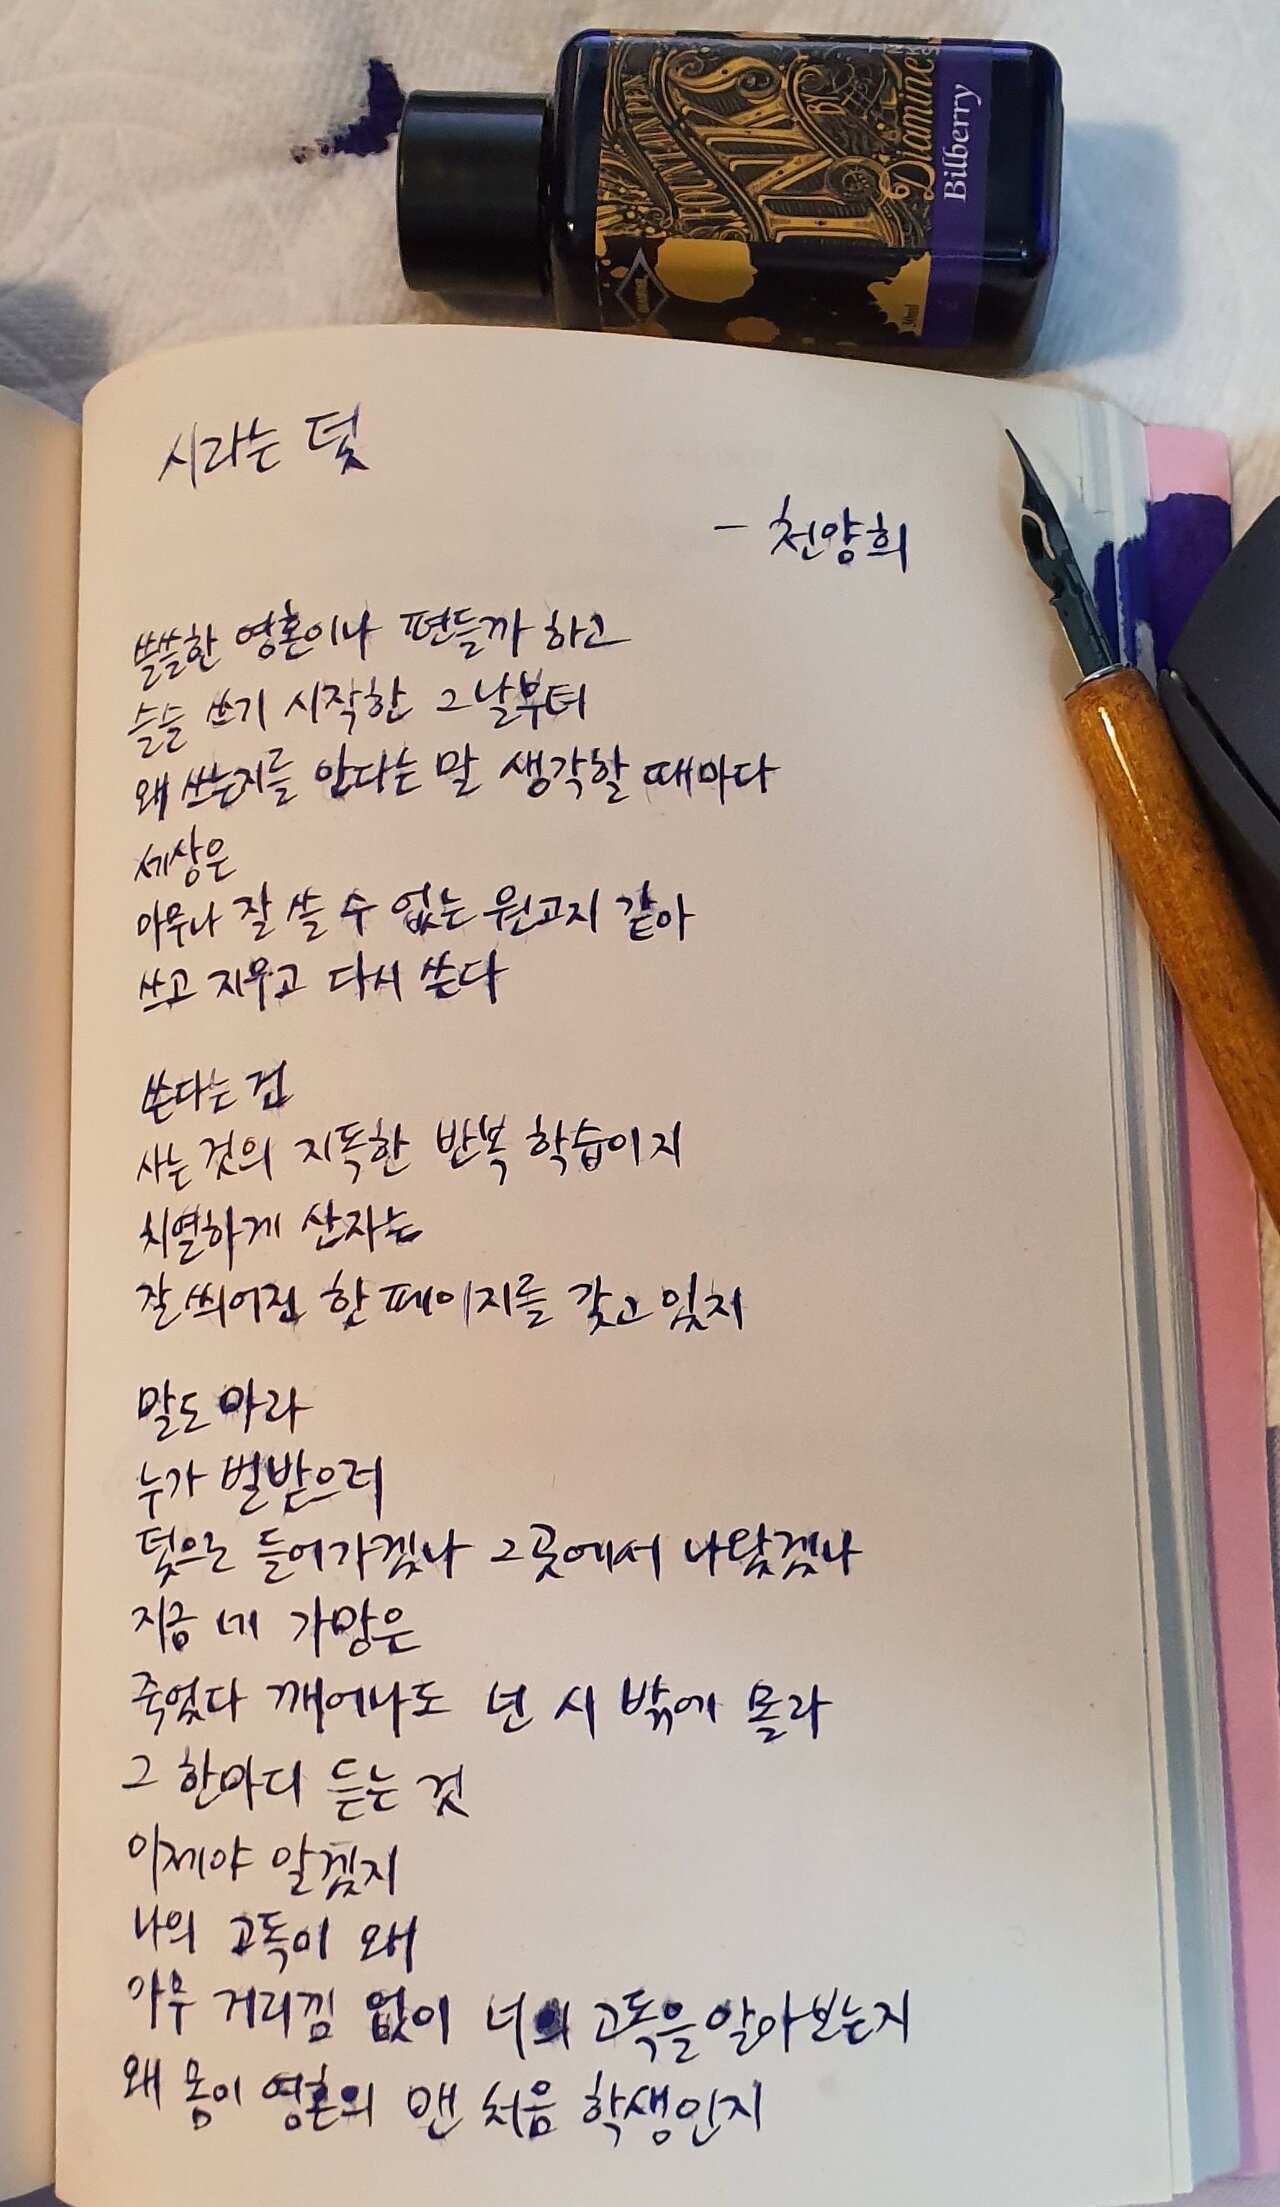 FOUNTAIN PEN
INKS
BY
Diamine
Bilberry
30ml
시라는 덫
- 천양희
쓸쓸한 영혼이나 편들까 하고
슬슬 쓰기 시작한 그날부터
왜 쓰는지를 안다는 말 생각할 때마다
세상은
아무나 잘 쓸 수 없는 원고지 같아
쓰고 지우고 다시 쓴다
쓴다는 건
사는 것의 지독한 반복 학습이지
치열하게 산자는
잘 씌어진 한 페이지를 갖고 있지
말도 마라
누가 벌받으러
덫으로 들어가겠나 그곳에서 나왔겠나
지금 네 가망은
죽었다 깨어나도 넌 시 밖에 몰라
그 한마디 듣는 것
이제야 알겠지
나의 고독이 왜
아무 거리낌 없이 너의 고독을 알아보는지
왜 몸이 영혼의 맨 처음 학생인지